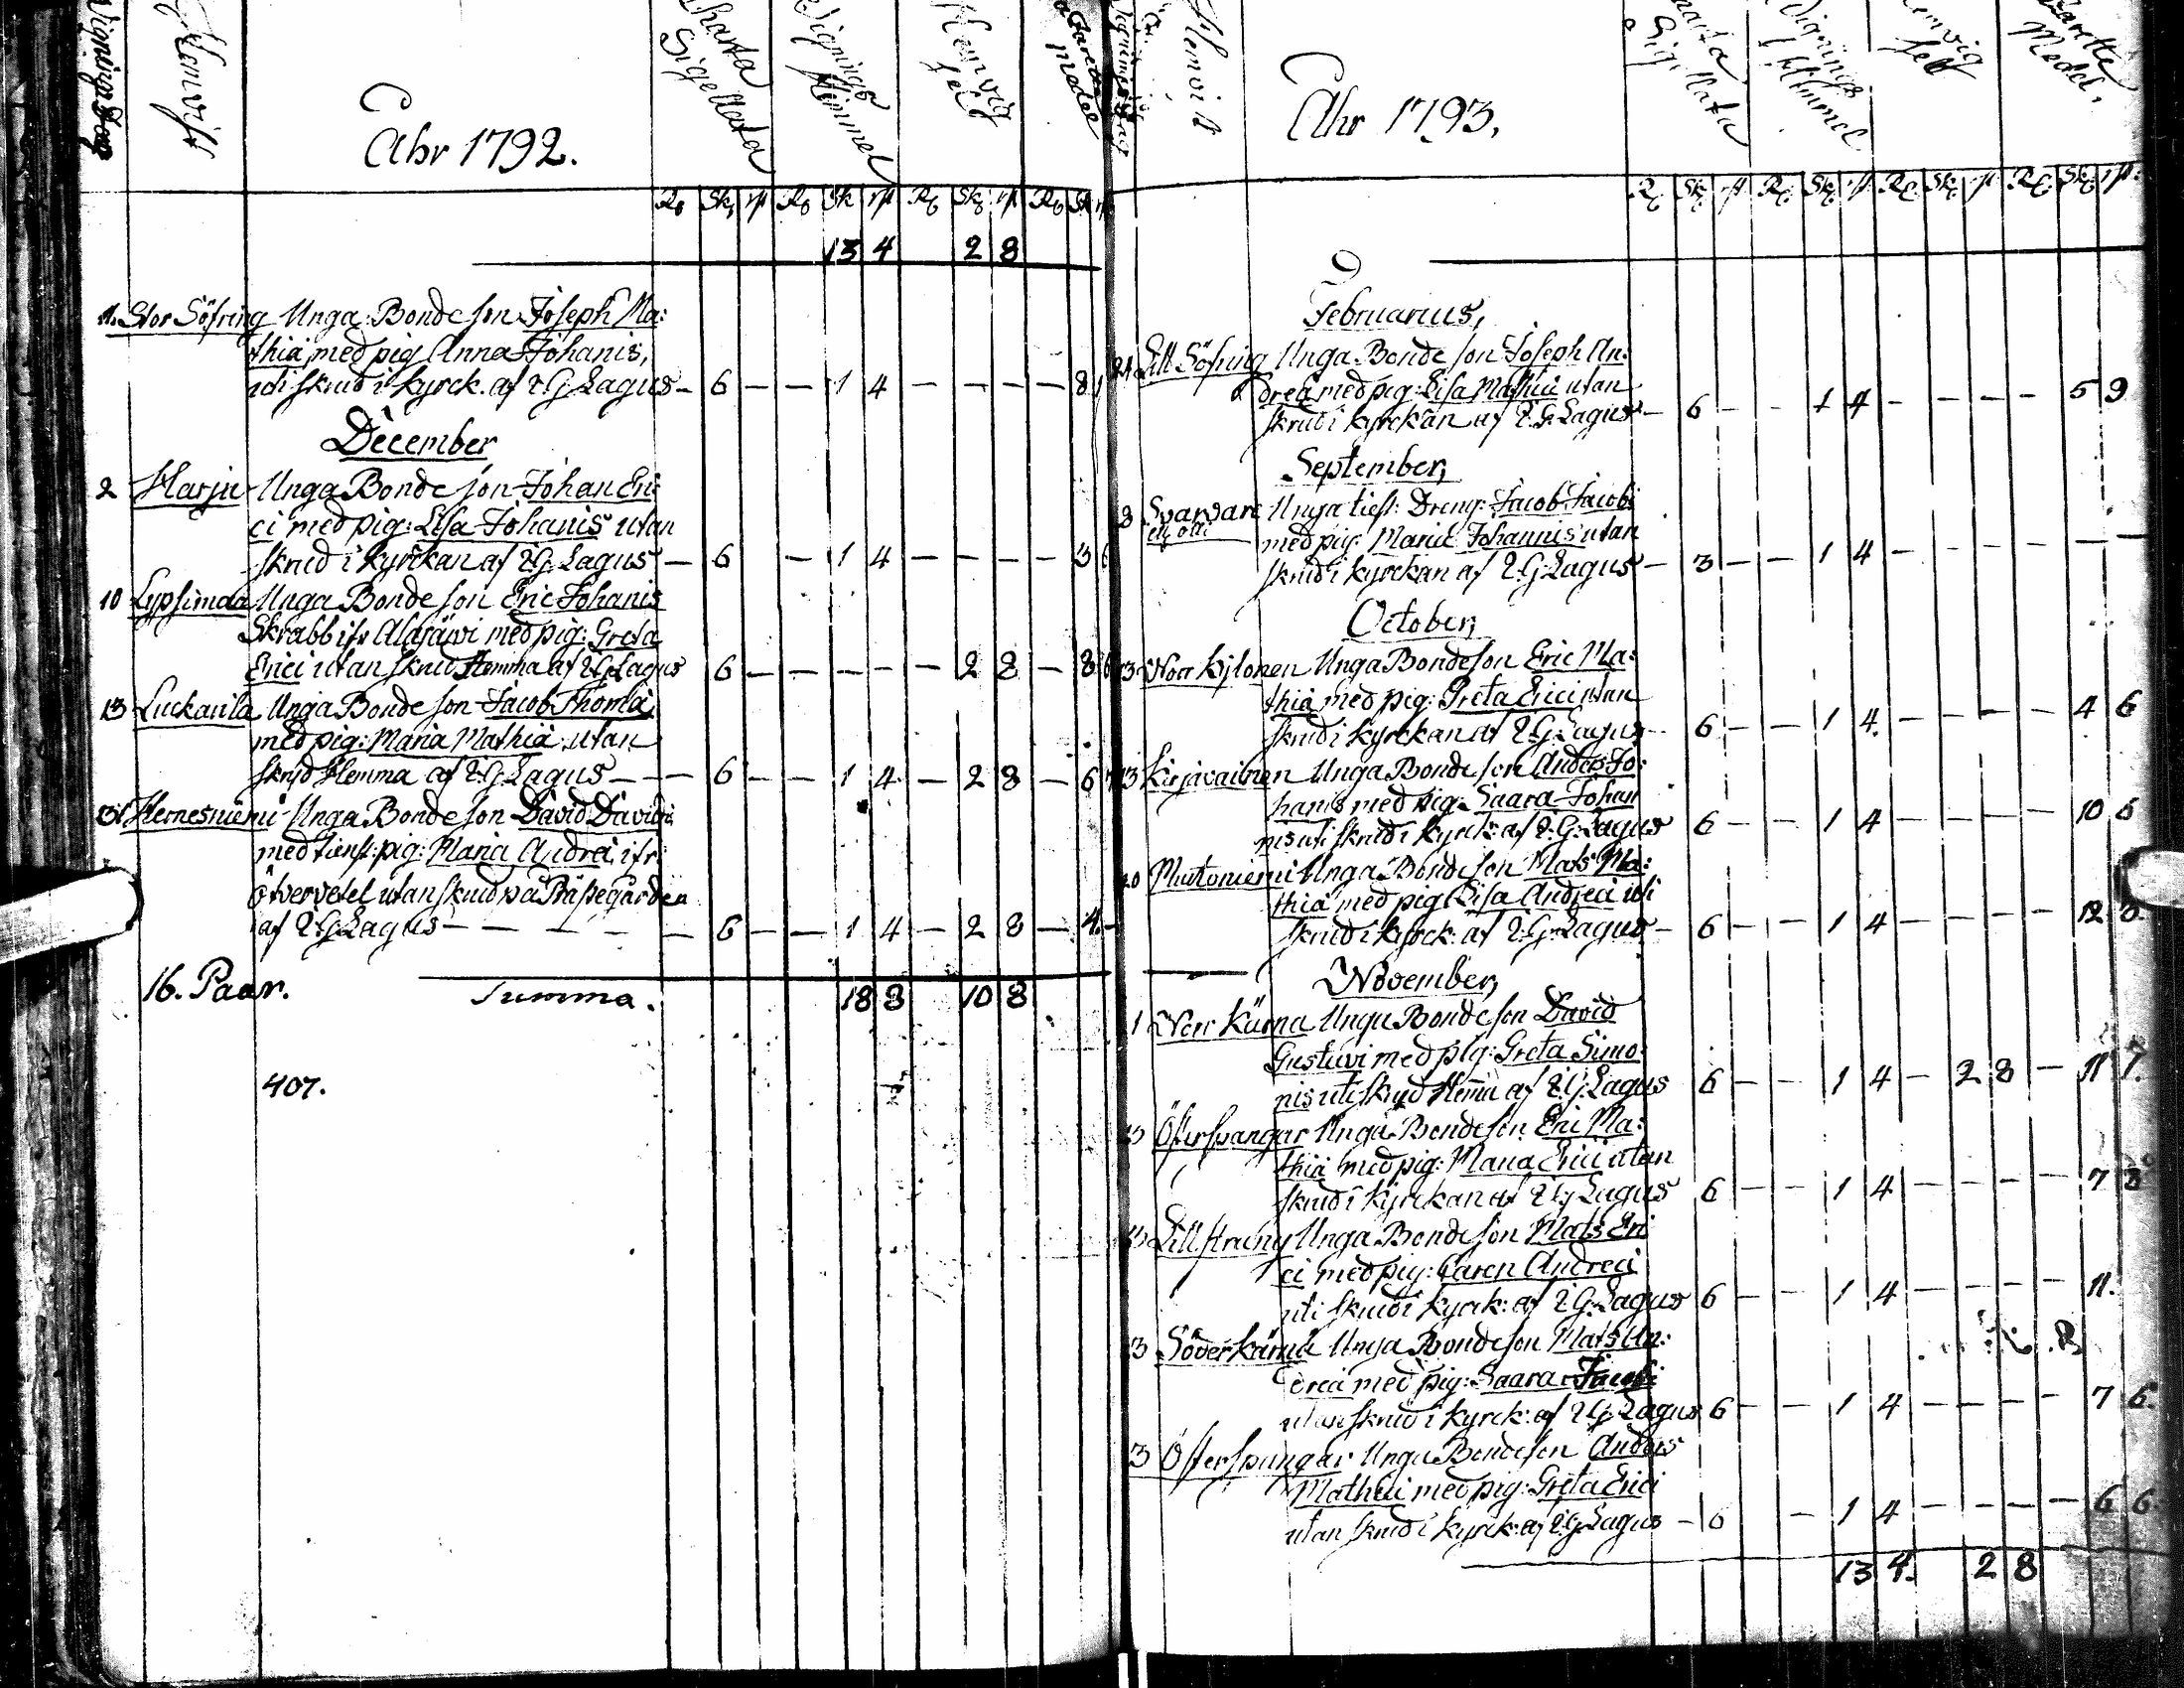 Wignings Dag
Hemvist
Åhr 1792.
Charta Sigillata
Wignings Stimmel
Hemvig fel
Fa&shy;rette medel
R₀ Sk. rst R₀ Sk rst R₀ Sk. rst R₀ Sk rst
13 4 2 8
1. Stor Söfring Unga: Bonde son Joseph Ma:
thiæ med pig Anna Johanis,
uti skrud i kyrck. af E G Lagus – 6 – – 1 4 – – – – 8
December
2 Harju Unga Bonde son Johan Eri
ci med pig: Lisa Johanis utan
skrud i kyrckan af E G Lagus – 6 – 1 4 – – – – 3 6
10 Lypsinmaa Unga Bonde son Eric Johanis
Skrabb ifr Alajäwi med pig: Greta
Erici utan skrud Hemma af E G Lagus 6 – – – – – 2 8 – 8
13 Luckarila Unga Bonde son Jacob Thomæ
med pig: Maria Mathiæ utan
skrud Hemma af E. G Lagus – – – 6 – – 1 4 – 2 8 – 6
31 Hernesniemi Unga Bonde son David Davidi
med tienst: pig: Maria Andreæ ifr:
Öfvervetel utan skrud på Prästegården
af E G Lagus – – – – – 6 – – 1 4 – 2 8 – 4. –
16. Paar. Summa. 18 8 10 8
407.
Hemvist
Åhr 1793.
Charta Sigillata
Wignings Stimmel
Hemvig fell
Farette Medel.
R₀ Sk. rst. R₀ Sk. rst. R₀ Sk. rst R₀ Sk. rst.
Februarius,
24 Lill Söfring Unga Bonde son Joseph An:
dreæ med pig: Lisa Mathiæ utan
skrud i kyrckan af E. G. Lagus – 6 – – 1 4 – – – – 5 9
September,
8 Svarvare Unga tiest: Dreng: Jacob Jacobi
med pig: Maria Johannis utan
skrud i kyrckan af E. G. Lagus – 3 – – 1 4 – – – – – –
October,
13 Norr Kylonen Unga Bonde son Eric Ma:
thiæ med pig: Greta Erici utan
skrud i kyrckan af E. G. Lagus – 6 – – 1 4. – – – – 4 6
13 Kirjavainen Unga Bonde son Anders Jo:
hanis med pig: Saara Johan
nis uti skrud i kyrck: af E. G: Lagus 6 – – 1 4 – – – – 10 6
20 Mustoniemi Unga Bonde son Mats Ma:
thiæ med pig Lisa Andreæ uti
skrud i kyrck: af E. G. Lagus – 6 – – 1 4 – – – – 12
November,
1 Norr Kärnä Unga Bonde son David
Gustavi med pig: Greta Simo:
nis uti skrud Hemma af E. G. Lagus 6 – – 1 4 – 2 8 – 11 7.
Österspangar Unga Bonde son Eric Ma:
thiæ med pig: Maria Erici utan
skrud i kyrckan af E G Lagus 6 – – 1 4 – – – – 7 8
Lillsträng Unga Bonde son Mats Eri
ci med pig: Caren Andreæ
uti skrud i kyrck: af E. G. Lagus 6 – – 1 4 – – – – 11.
3 Söderkärnä Unga Bonde son Mats An:
dreæ med pig: Saara Jacobi
utan skrud i kyrck: af E G. Lagus 6 – – 1 4 – – – – 7 6.
3 Österspangar Unga Bonde son Anders
Mathiæ med pig: Greta Erici
utan skrud i kyrck: af E G. Lagus – 6 – 1 4 – – – – 6 6
13 4. 2 8